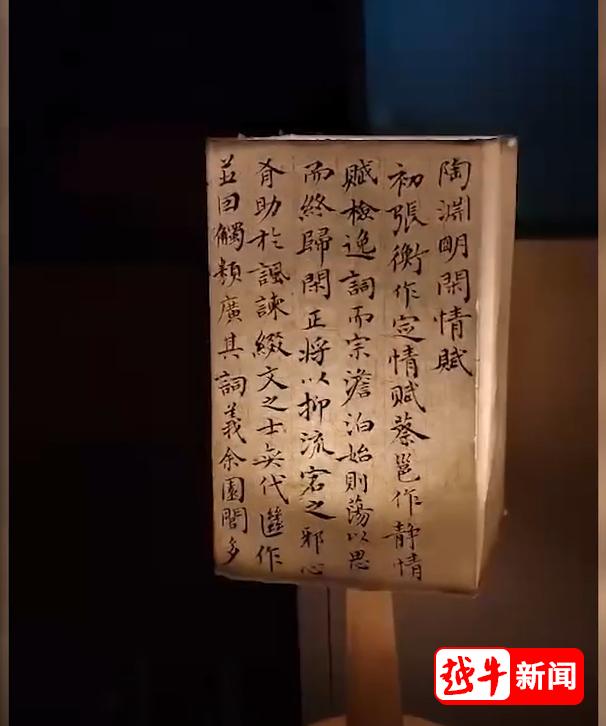 陶淵明閑情賦
初張衡作定情賦蔡邕作静情
賦檢逸詞而宗澹泊始則蕩以思
而終歸閑正將以抑流宕之邪心
有助於諷諫綴文之士奕代繼作
並因觸類廣其詞義余園閭多
越牛新闻